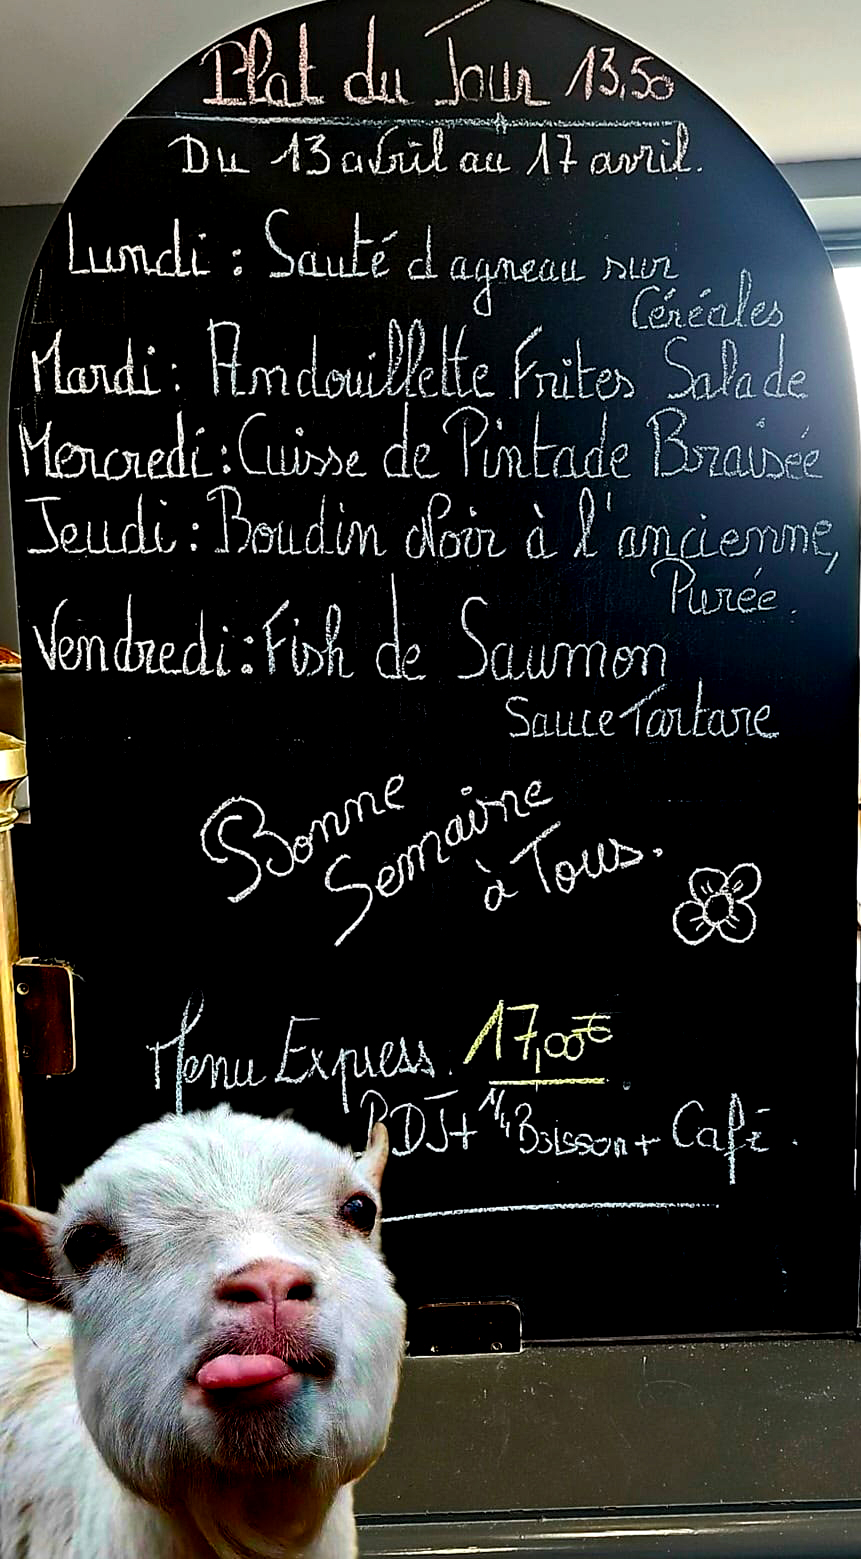 Plat du Jour 13,50
Du 13 avril au 17 avril.
Lundi : Sauté d agneau sur
Céréales
Mardi : Andouillette Frites Salade
Mercredi : Cuisse de Pintade Braisée
Jeudi : Boudin Noir à l'ancienne,
Purée.
Vendredi : Fish de Saumon
Sauce Tartare
Bonne
Semaine
à Tous.
Menu Express. 17,00€
PDJ + 1/4 Boisson + Café.